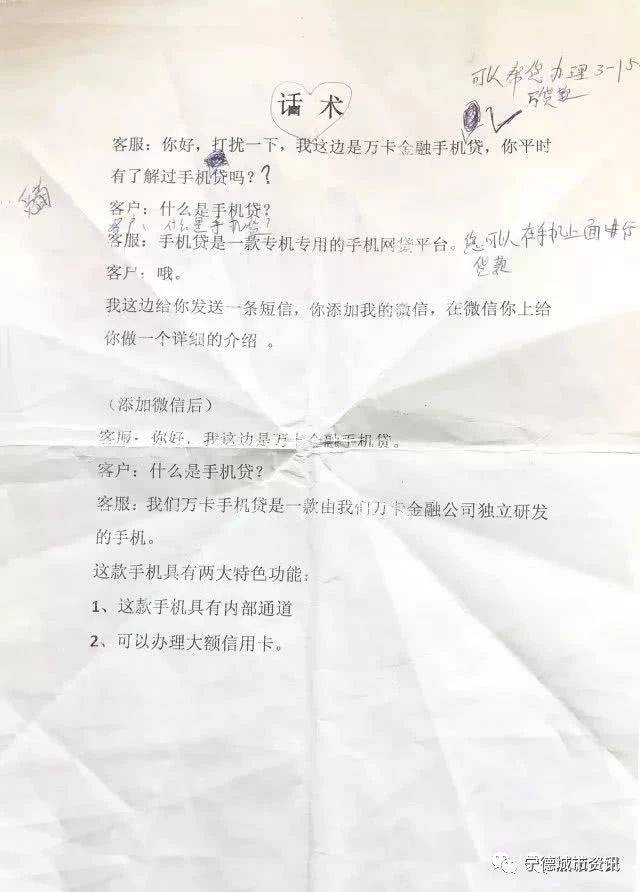 可以帮您办理3-15
万贷款
话术
客服：你好，打扰一下，我这边是万卡金融手机贷，你平时
有了解过手机贷吗？？
客户：什么是手机贷？
客户：什么是手机贷？
客服：手机贷是一款专机专用的手机网贷平台。您可以在手机上面进行
贷款
客户：哦。
我这边给你发送一条短信，你添加我的微信，在微信你上给
你做一个详细的介绍 。
（添加微信后）
客服：你好，我这边是万卡金融手机贷。
客户：什么是手机贷？
客服：我们万卡手机贷是一款由我们万卡金融公司独立研发
的手机。
这款手机具有两大特色功能：
1、这款手机具有内部通道
2、可以办理大额信用卡。
宁德城市资讯